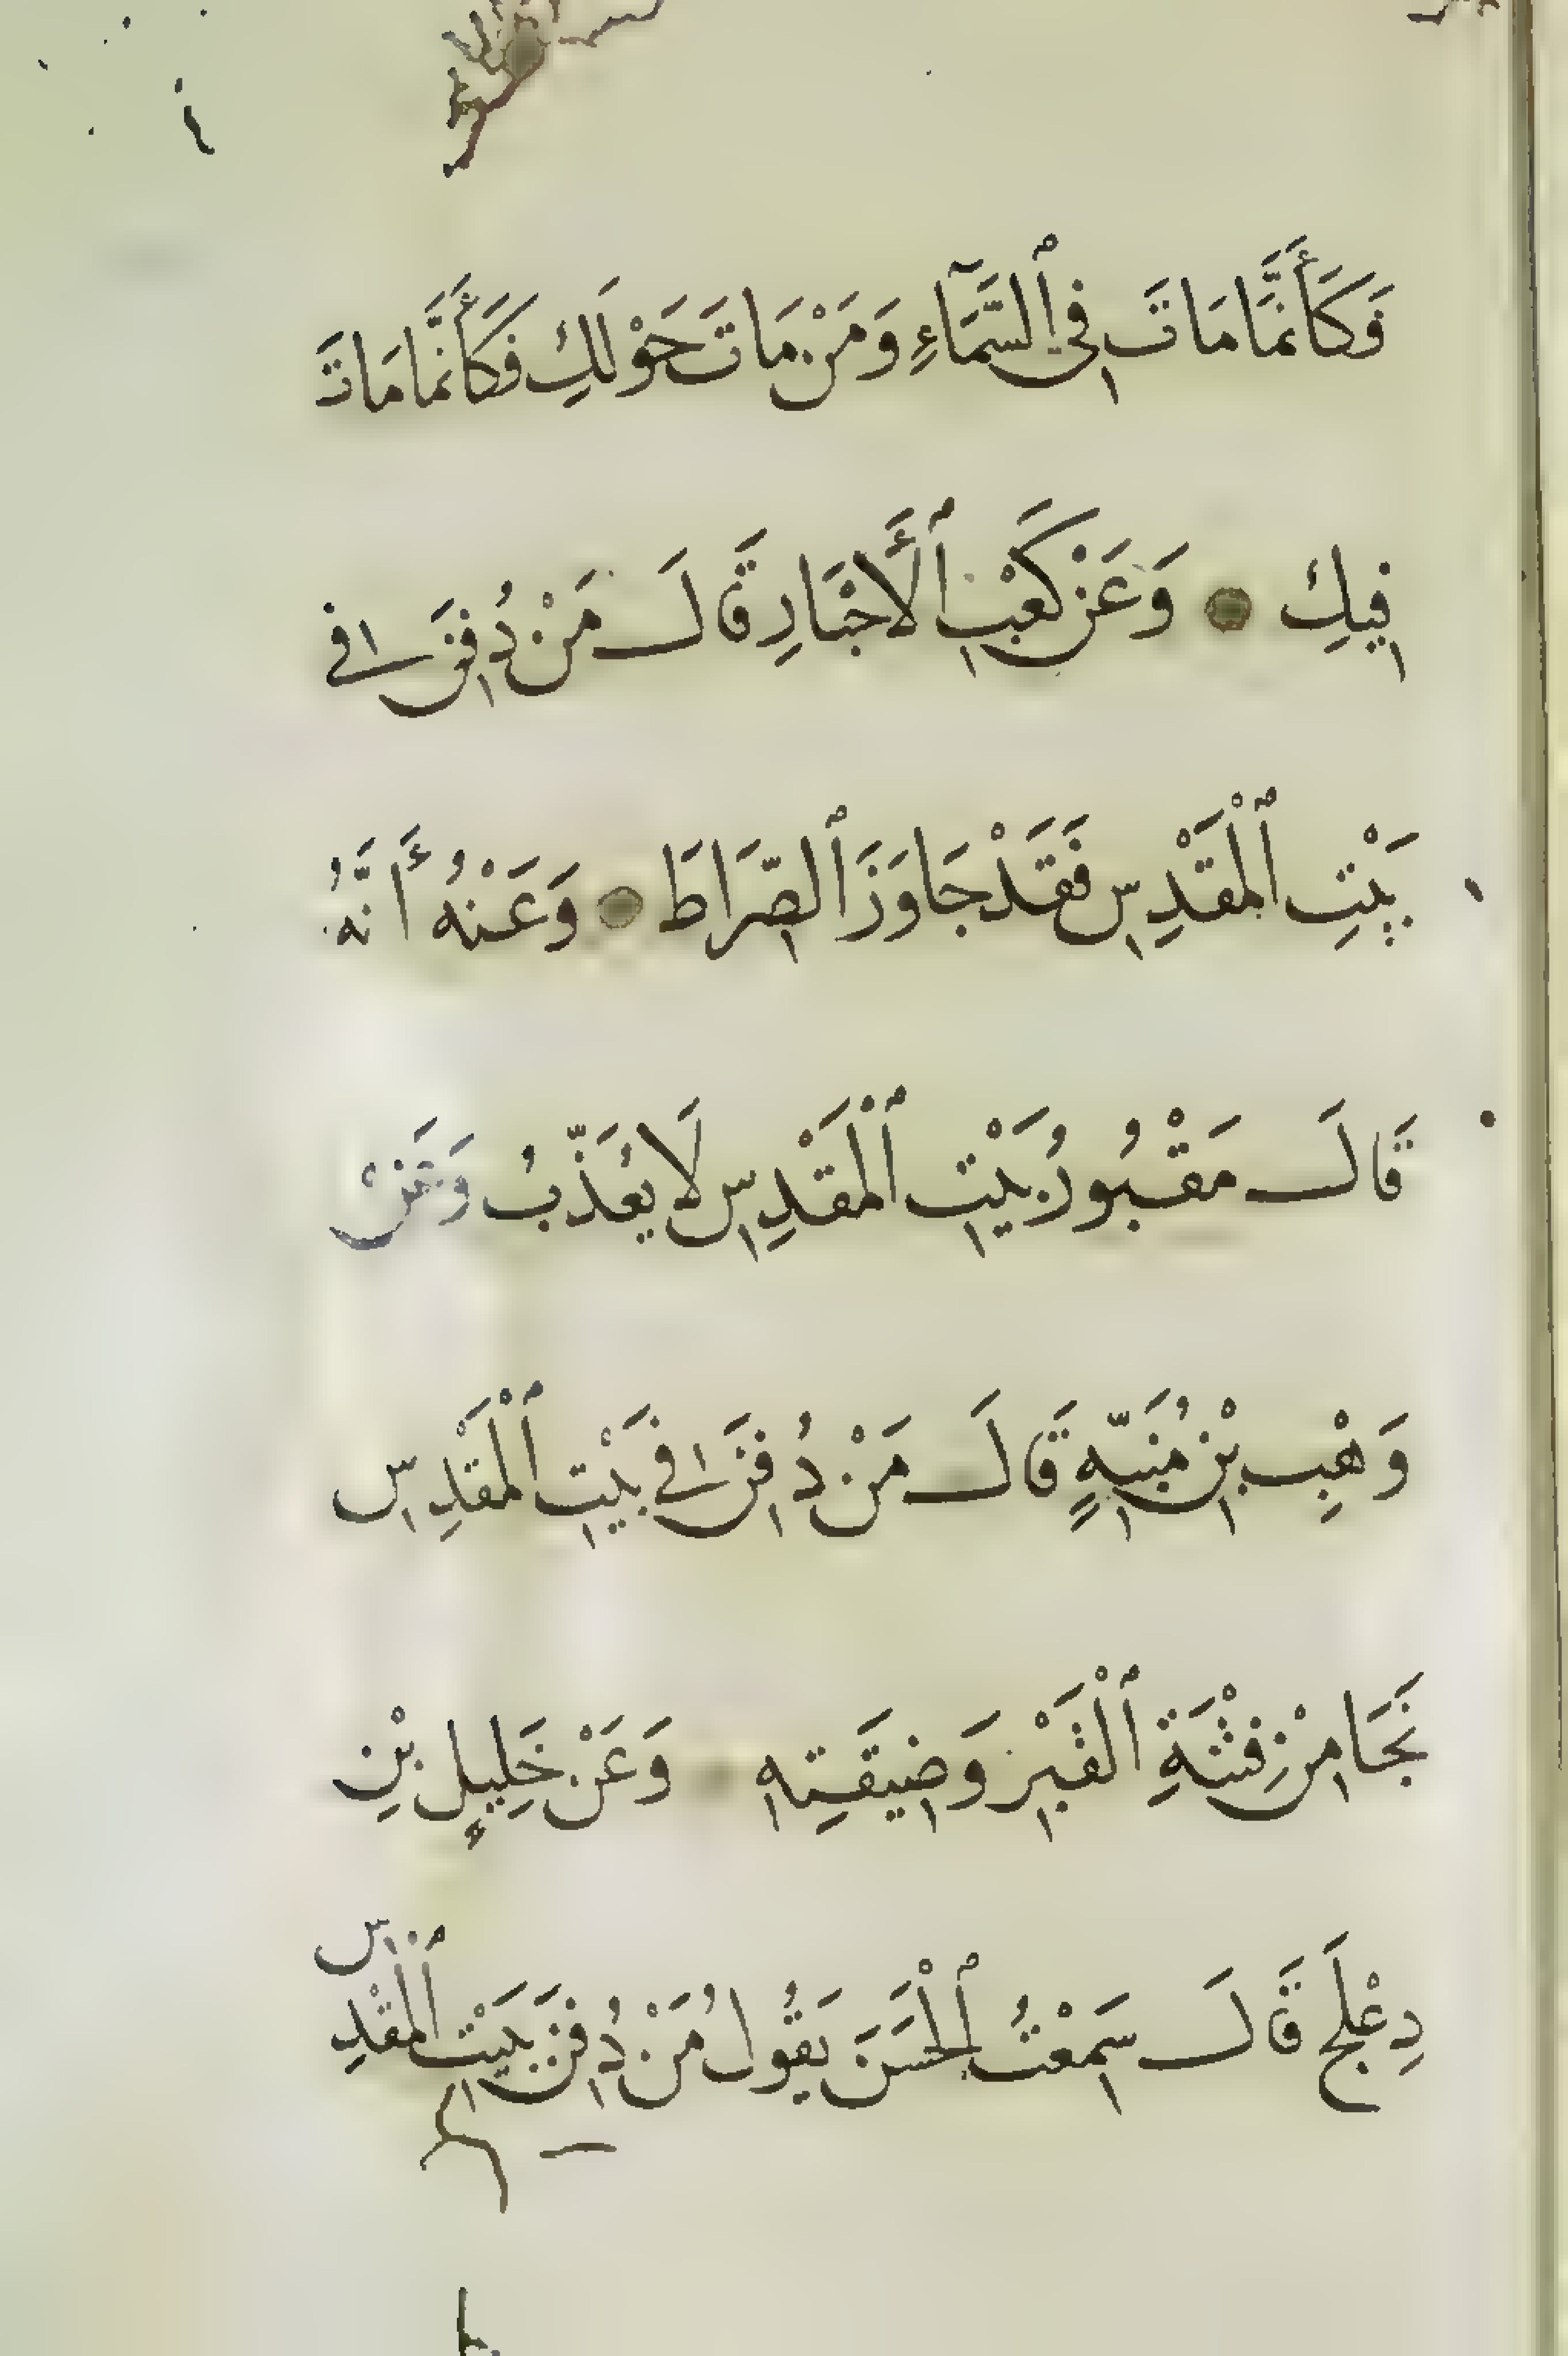 فَكَأَنَّمَا مَاتَ فِي ٱلسَّمَآءِ وَمَنْ مَاتَ حَوْلَكِ فَكَأَنَّمَا مَاتَ
فِيكِ ● وَعَنْ كَعْبِ ٱلْأَحْبَارِ قَالَ مَنْ دُفِنَ فِي
بَيْتِ ٱلْمَقْدِسِ فَقَدْ جَاوَزَ ٱلصِّرَاطَ ● وَعَنْهُ أَنَّهُ
قَالَ مَقْبُورُ بَيْتِ ٱلْمَقْدِسِ لَا يُعَذَّبُ وَعَنْ
وَهْبِ بْنِ مُنَبِّهٍ قَالَ مَنْ دُفِنَ فِي بَيْتِ ٱلْمَقْدِسِ
نَجَا مِنْ فِتْنَةِ ٱلْقَبْرِ وَضِيقَتِهِ وَعَنْ خَلِيلٍ بْنِ
دِعْلَجٍ قَالَ سَمِعْتُ ٱلْحَسَنَ يَقُولُ مَنْ دُفِنَ بَيْتِ ٱلْمَقْدِسِ